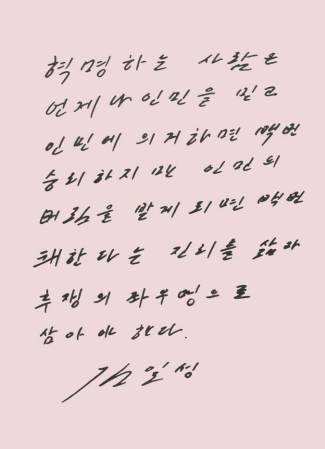 혁명하는 사람은
언제나 인민을 믿고
인민에 의거하면 백번
승리하지만 인민의
버림을 받게 되면 백번
패한다는 진리를 삶과
투쟁의 좌우명으로
삼아야 한다.
김일성